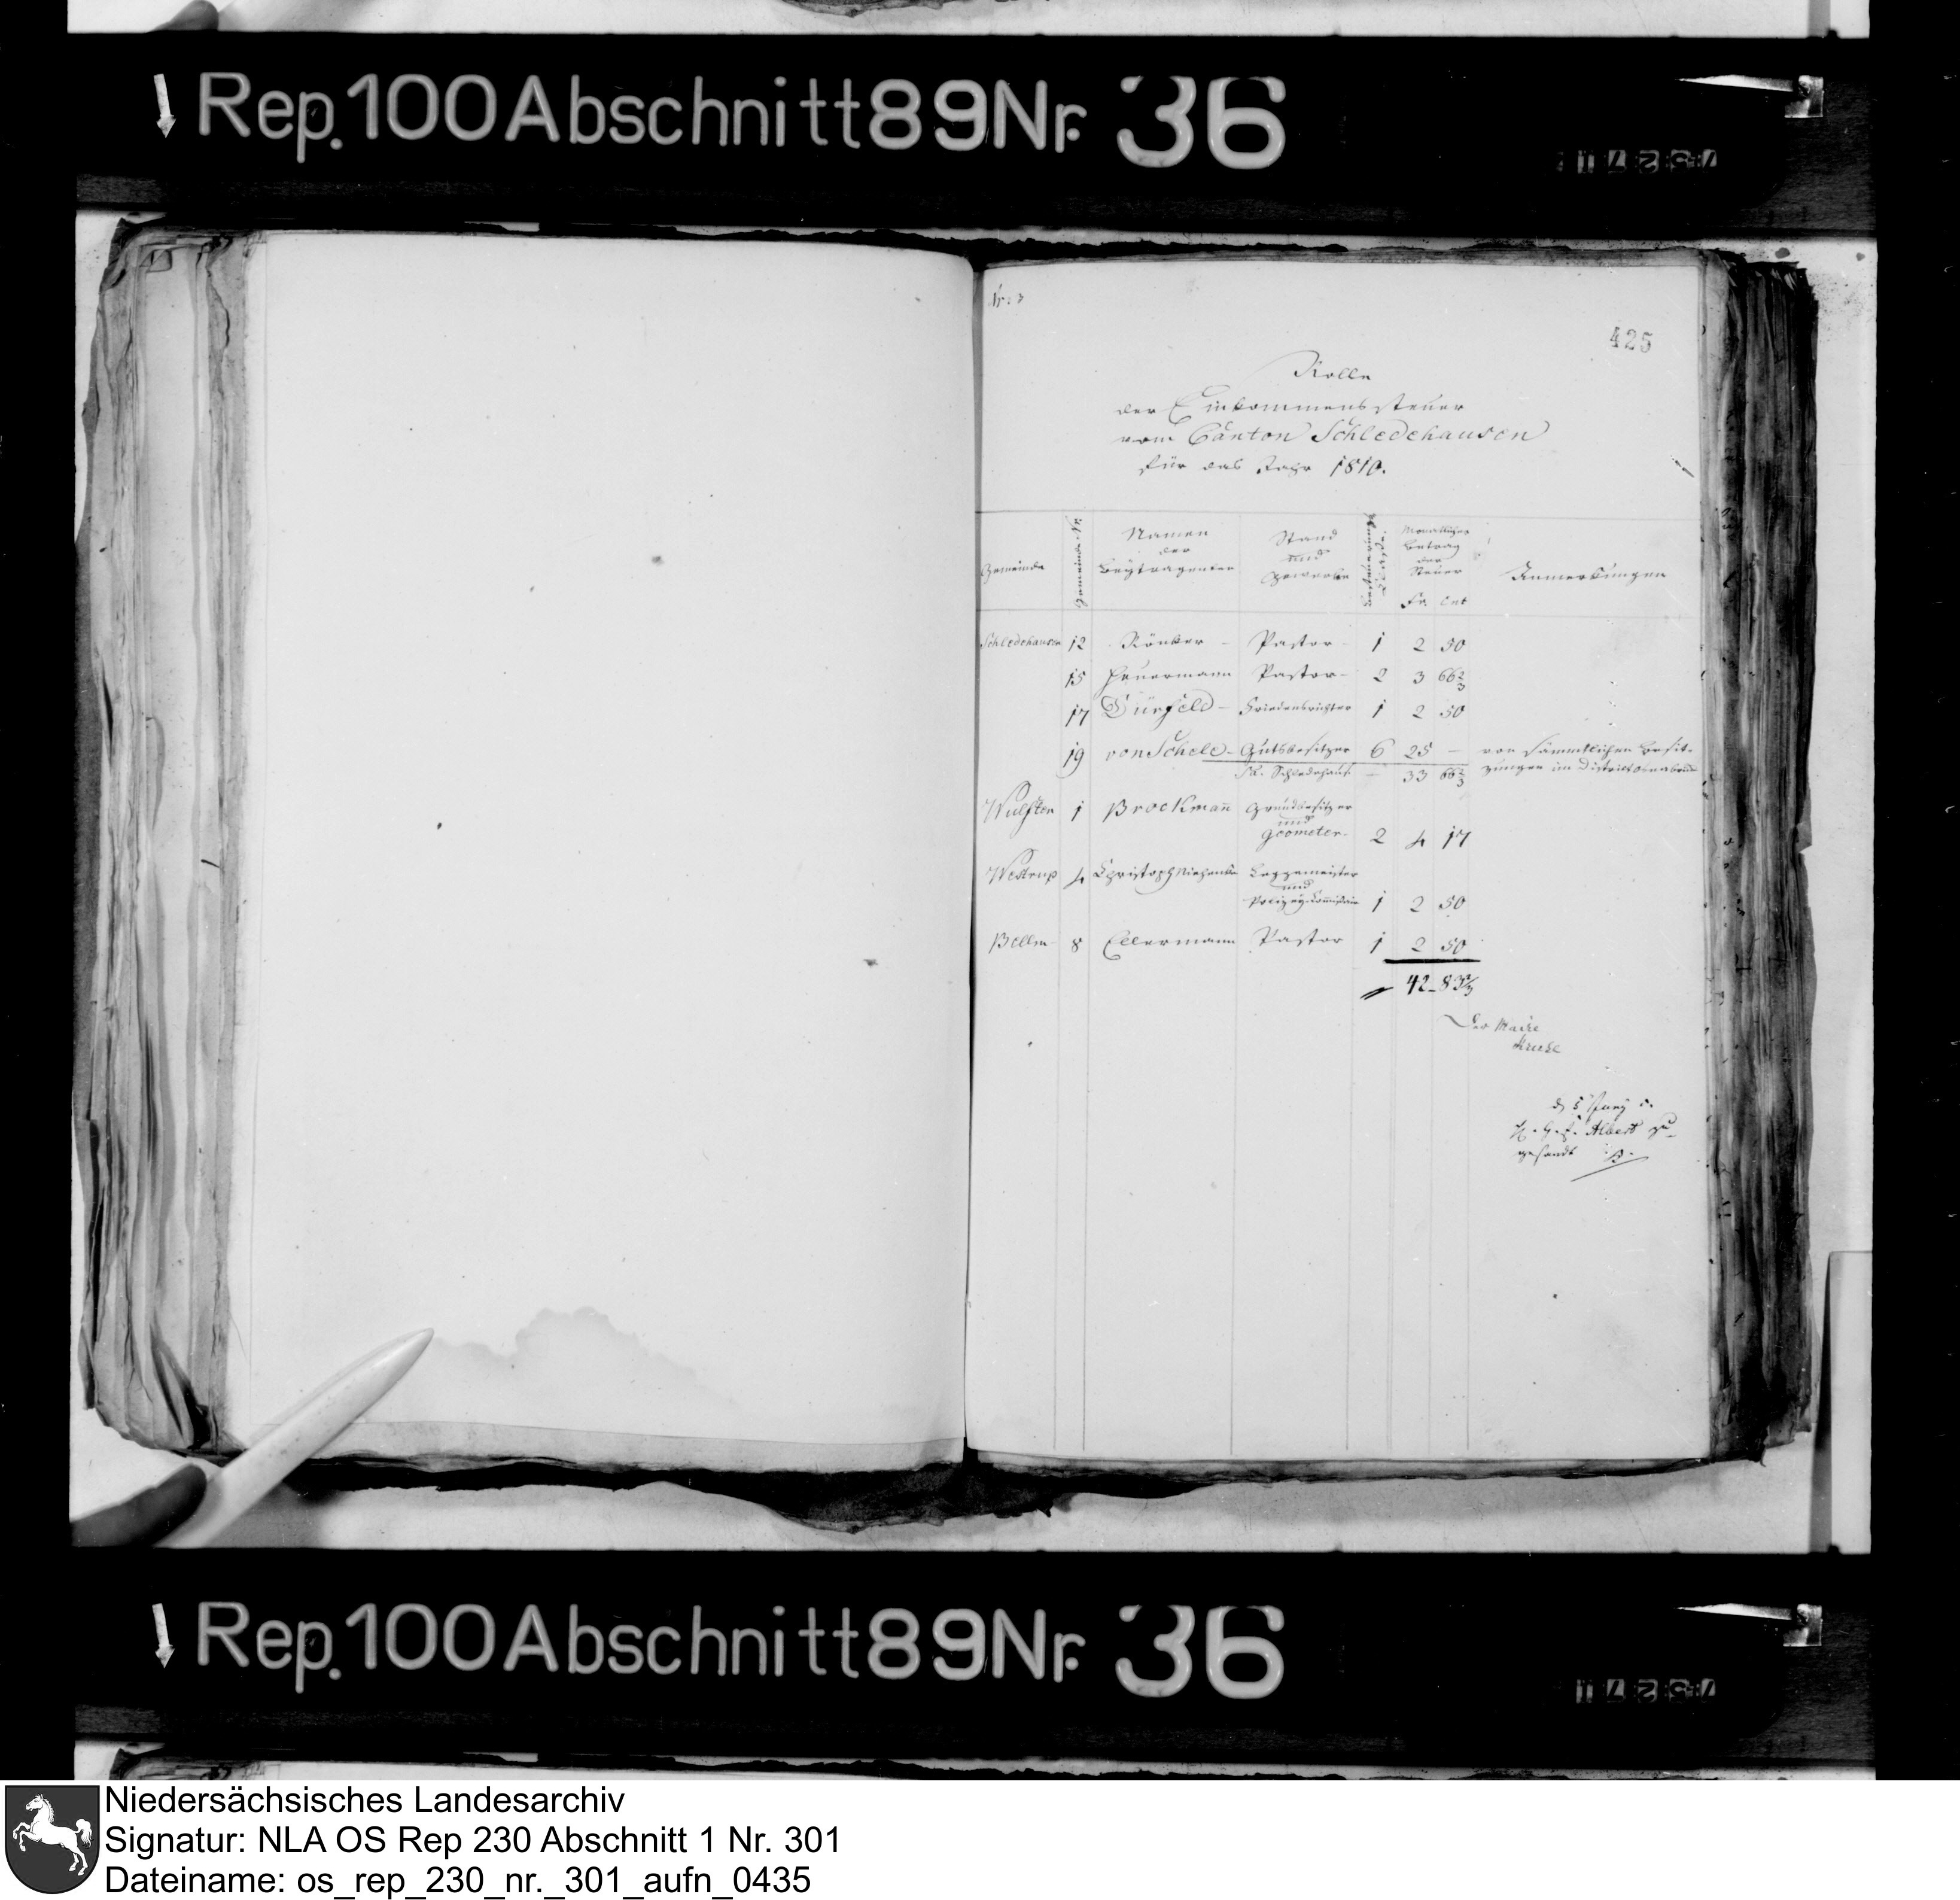 Rep. 100 Abschnitt 89 Nr. 36
Nr. 3
425
Rolle
der Einkommenssteuer
vom Canton Schledehausen
für das Jahr 1810.
Gemeinde
Namen der Beytragenden
Stand und Gewerbe
Monatlicher Betrag der Steuer
Fr. Cnt
Anmerkungen
Schledehausen 12 Rönker - Pastor - 1 2 50
15 Heuermann Pastor - 2 3 66 2/3
17 Dürfeld - Friedensrichter 1 2 50
19 von Schele - Gutsbesitzer 6 25 - von sämmtlichen Besit-
Schledehaus - 33 66 2/3 zungen im District Osnabrück
Wulften 1 Brockmann Grundbesitzer
und
Geometer. 2 4 17
Westrup 4 Christoph
und
1 2 50
Bellm 8 Ellermann Pastor 1 2 50
42-83 2/3
Der Maire
Kruse
Albert zu-
gesandt B.
Rep. 100 Abschnitt 89 Nr. 36
Niedersächsisches Landesarchiv
Signatur: NLA OS Rep 230 Abschnitt 1 Nr. 301
Dateiname: os_rep_230_nr._301_aufn_0435